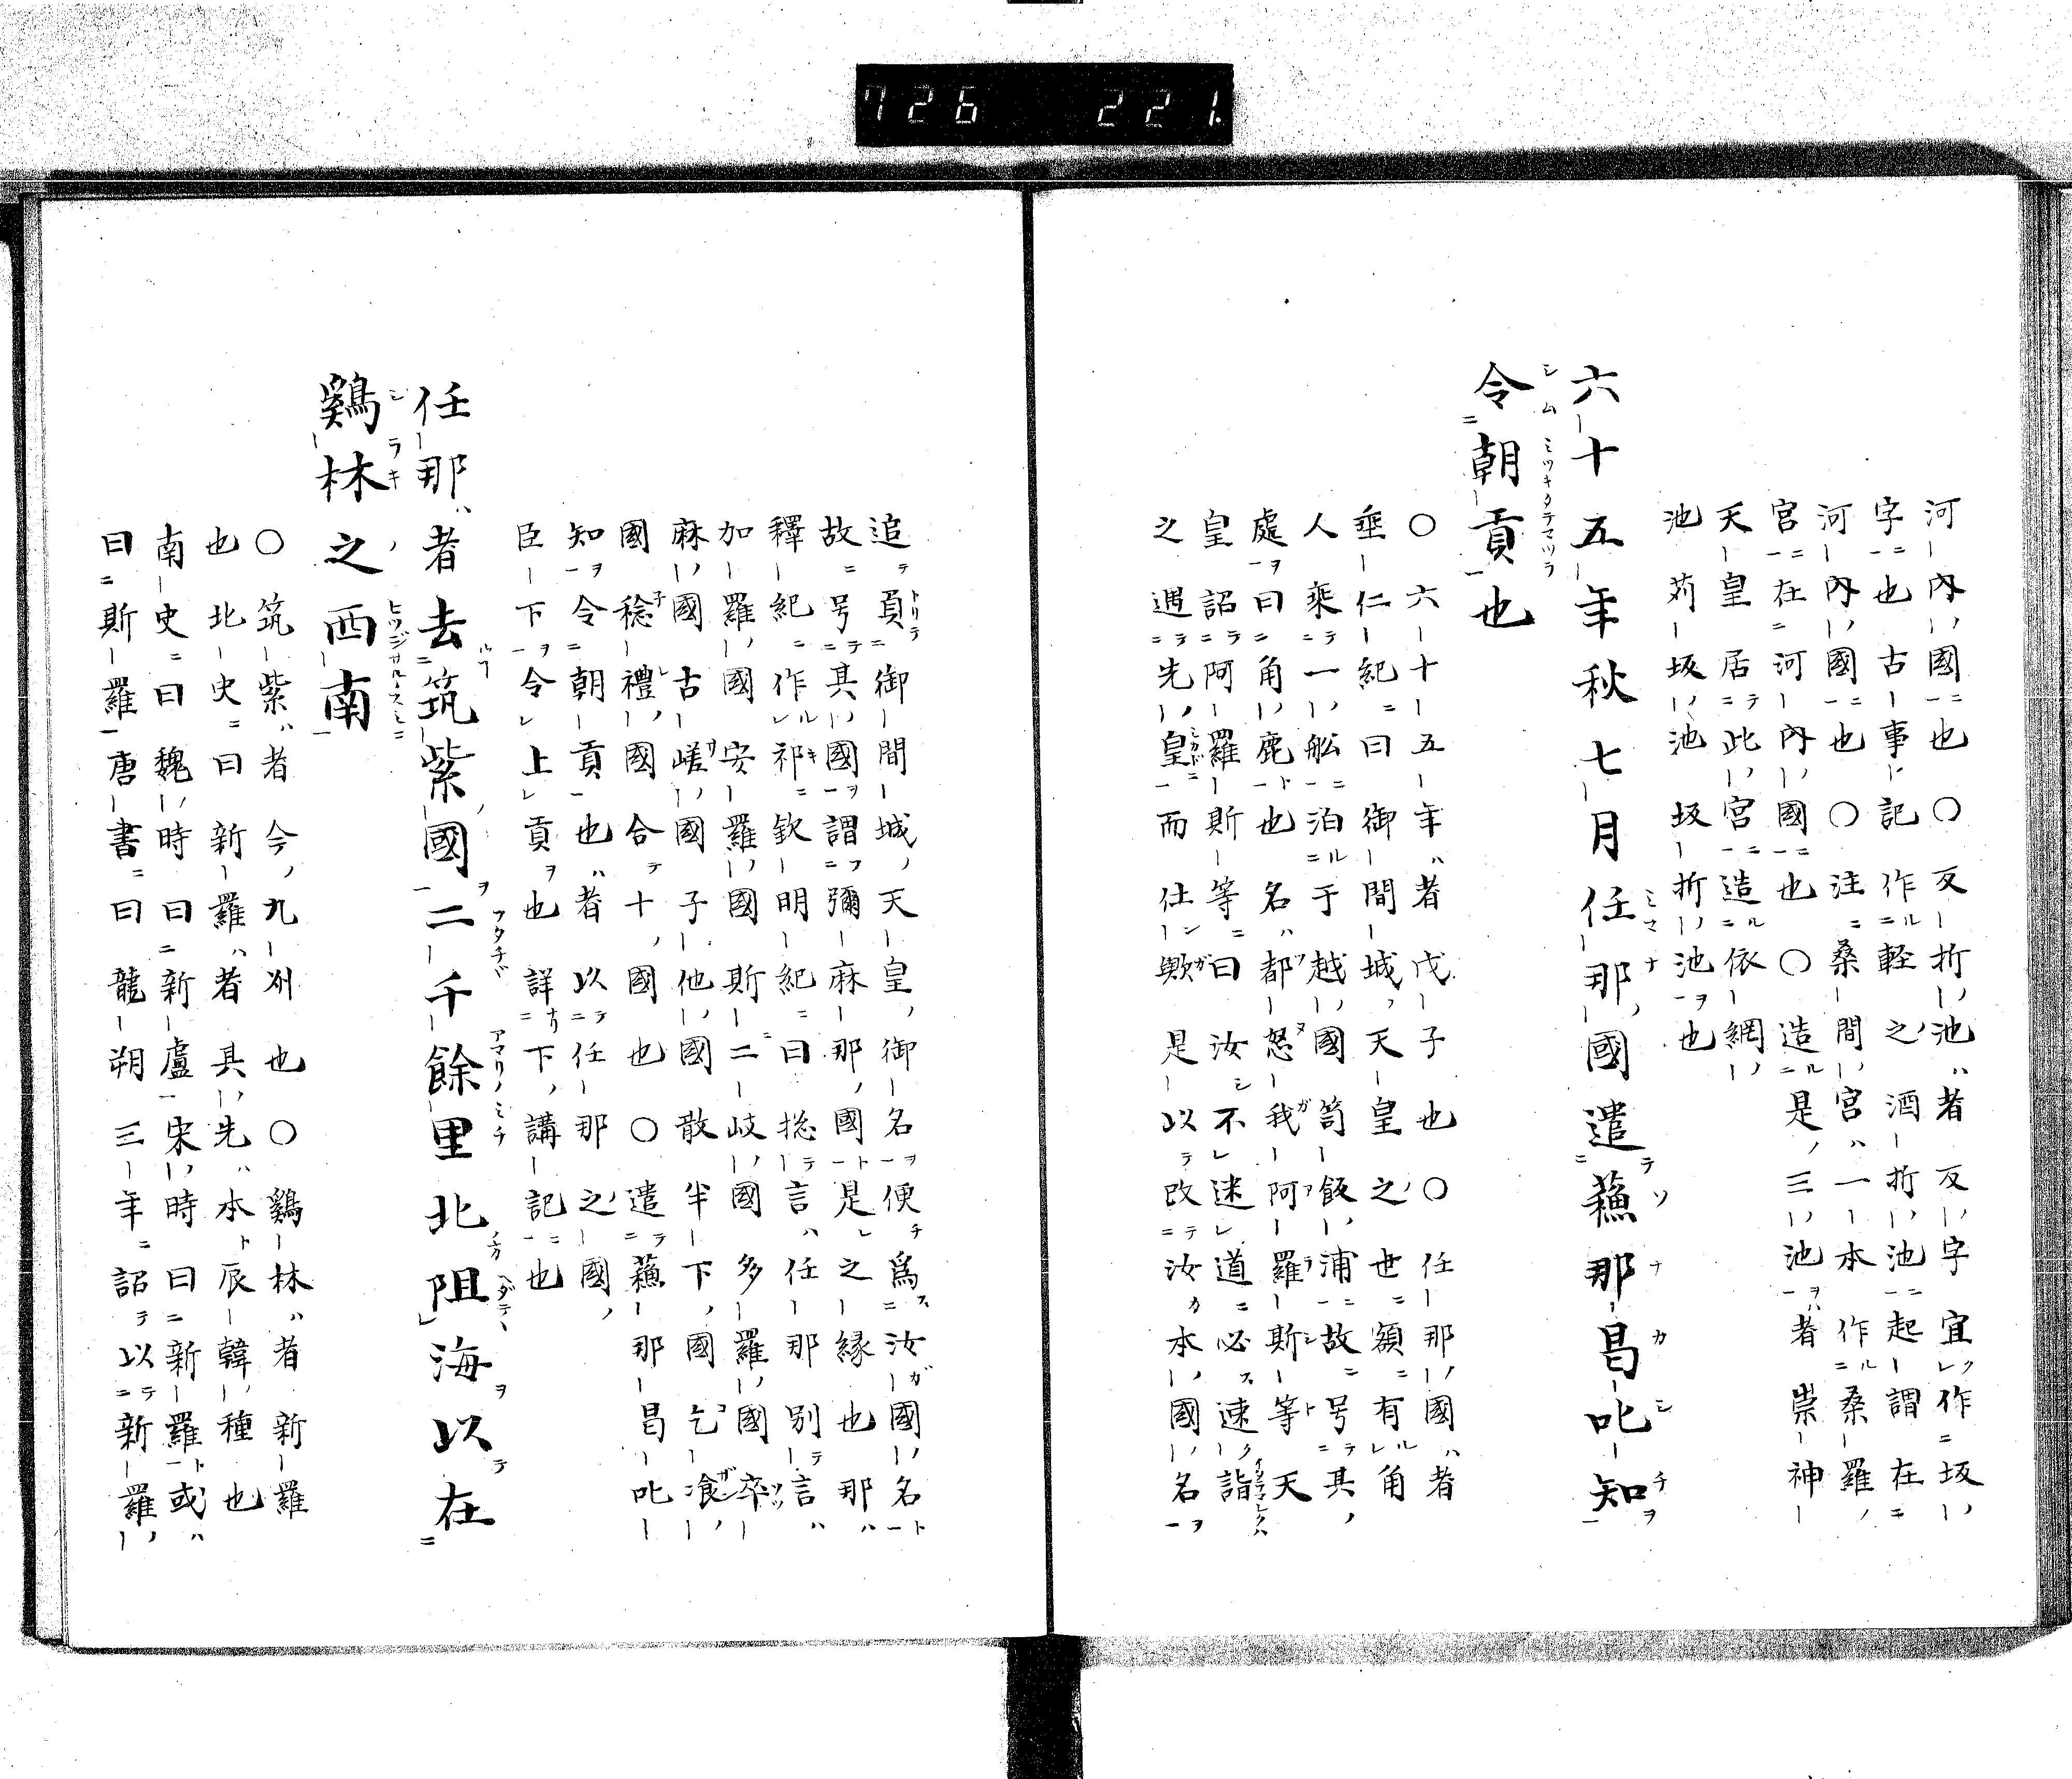 726 221.
河内國也〇反折池者反字宜作坂
字也古事記作軽之酒折池起謂在
河内國也〇注桑間宮一本作桑羅
宮在河内國也〇造是三池者崇神
天皇居此宮造依網
池苅坂池坂折池也
六十五年秋七月任那國遣蘓那曷叱知
令朝貢也
〇六十五年者戊子也〇任那國者
垂仁紀曰御間城天皇之世額有角
人乘一舩泊于越國笥飯浦故号其
處曰角鹿也名都怒我阿羅斯等天
皇詔阿羅斯等曰汝不迷道必速詣
之遇先皇而仕歟是以改汝本國名
追負御間城天皇御名便爲汝國名
故号其國謂彌麻那國是之縁也那
釋紀作祁欽明紀曰捴言任那別言
加羅國安羅國斯二岐國多羅國卒
麻國古嵯國子他國散半下國乞飡
國稔禮國合十國也〇遣蘓那曷叱
知令朝貢也者以任那之國
臣下令上貢也詳下講記也
任那者去筑紫國二千餘里北阻海以在
鷄林之西南
〇筑紫者今九州也〇鷄林者新羅
也北史曰新羅者其先本辰韓種也
南史曰魏時曰新盧宋時曰新羅或
曰斯羅唐書曰龍朔三年詔以新羅